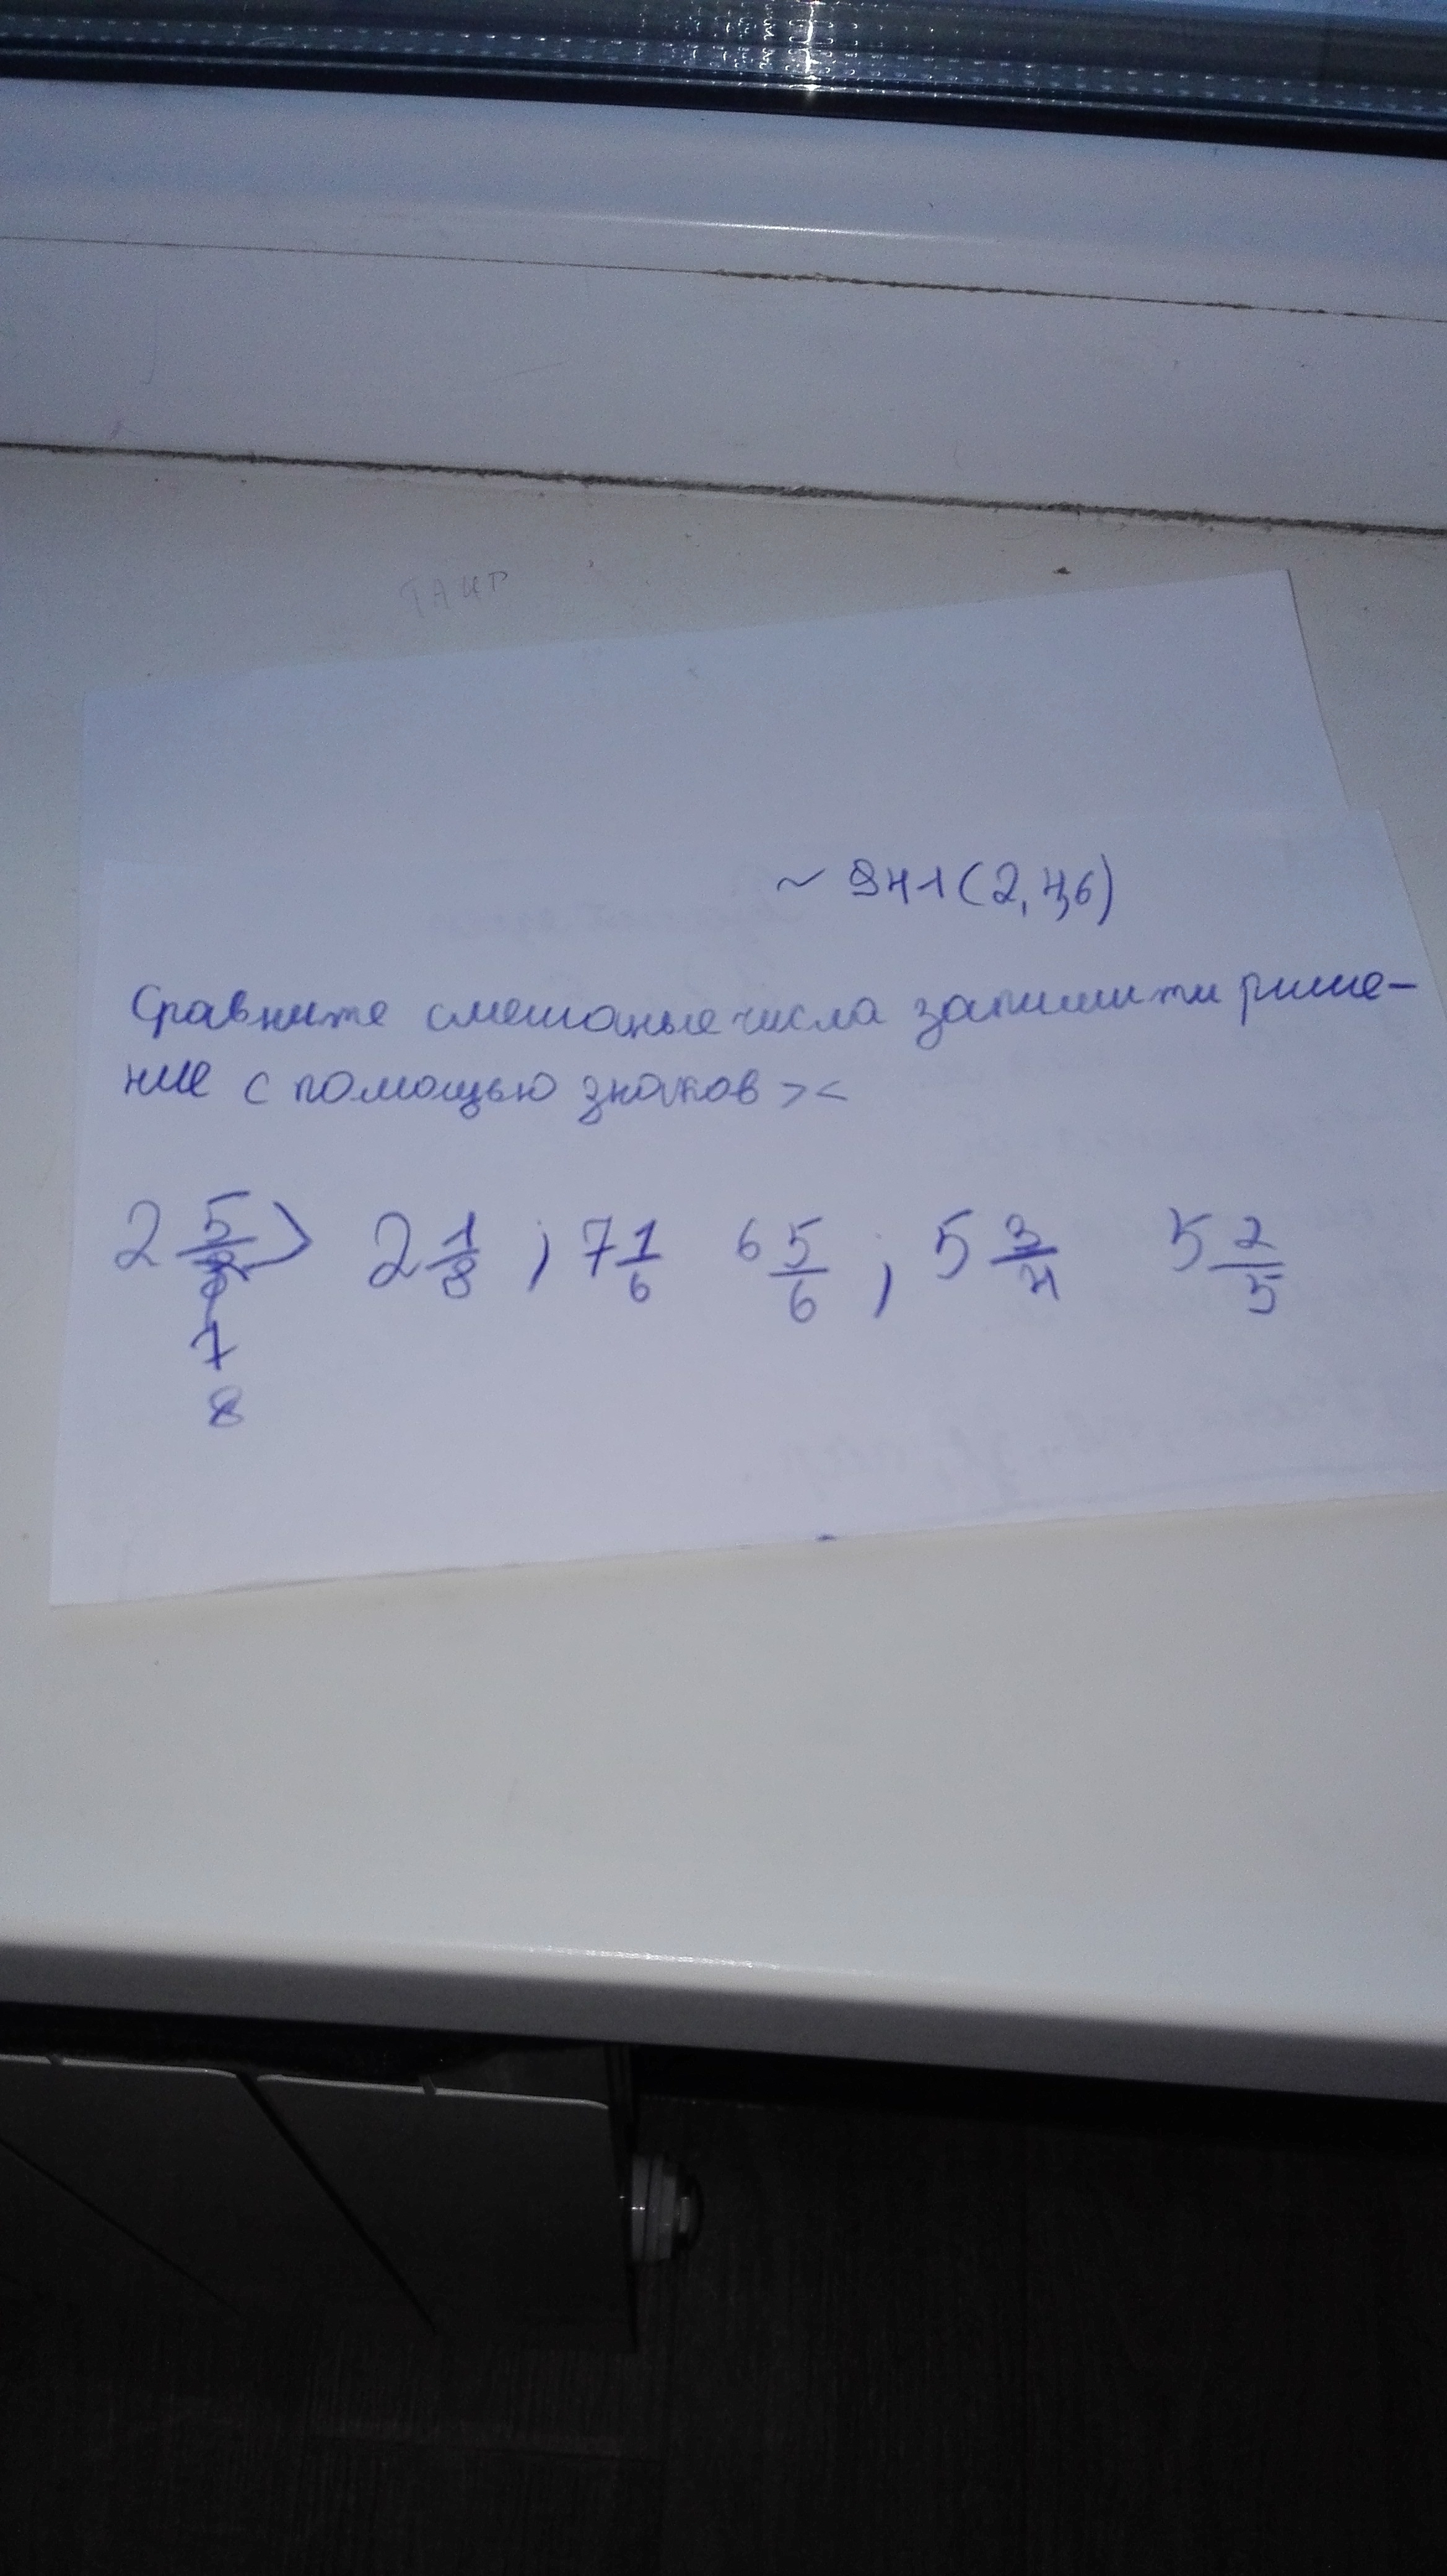 ТАИР
~ 941(2,4,6)
Сравните смешаные числа запишити рише-
ние с помощью знаков > <
2 5/8 > 2 1/8 ; 7 1/6 6 5/6 ; 5 3/4 5 2/5
7
8